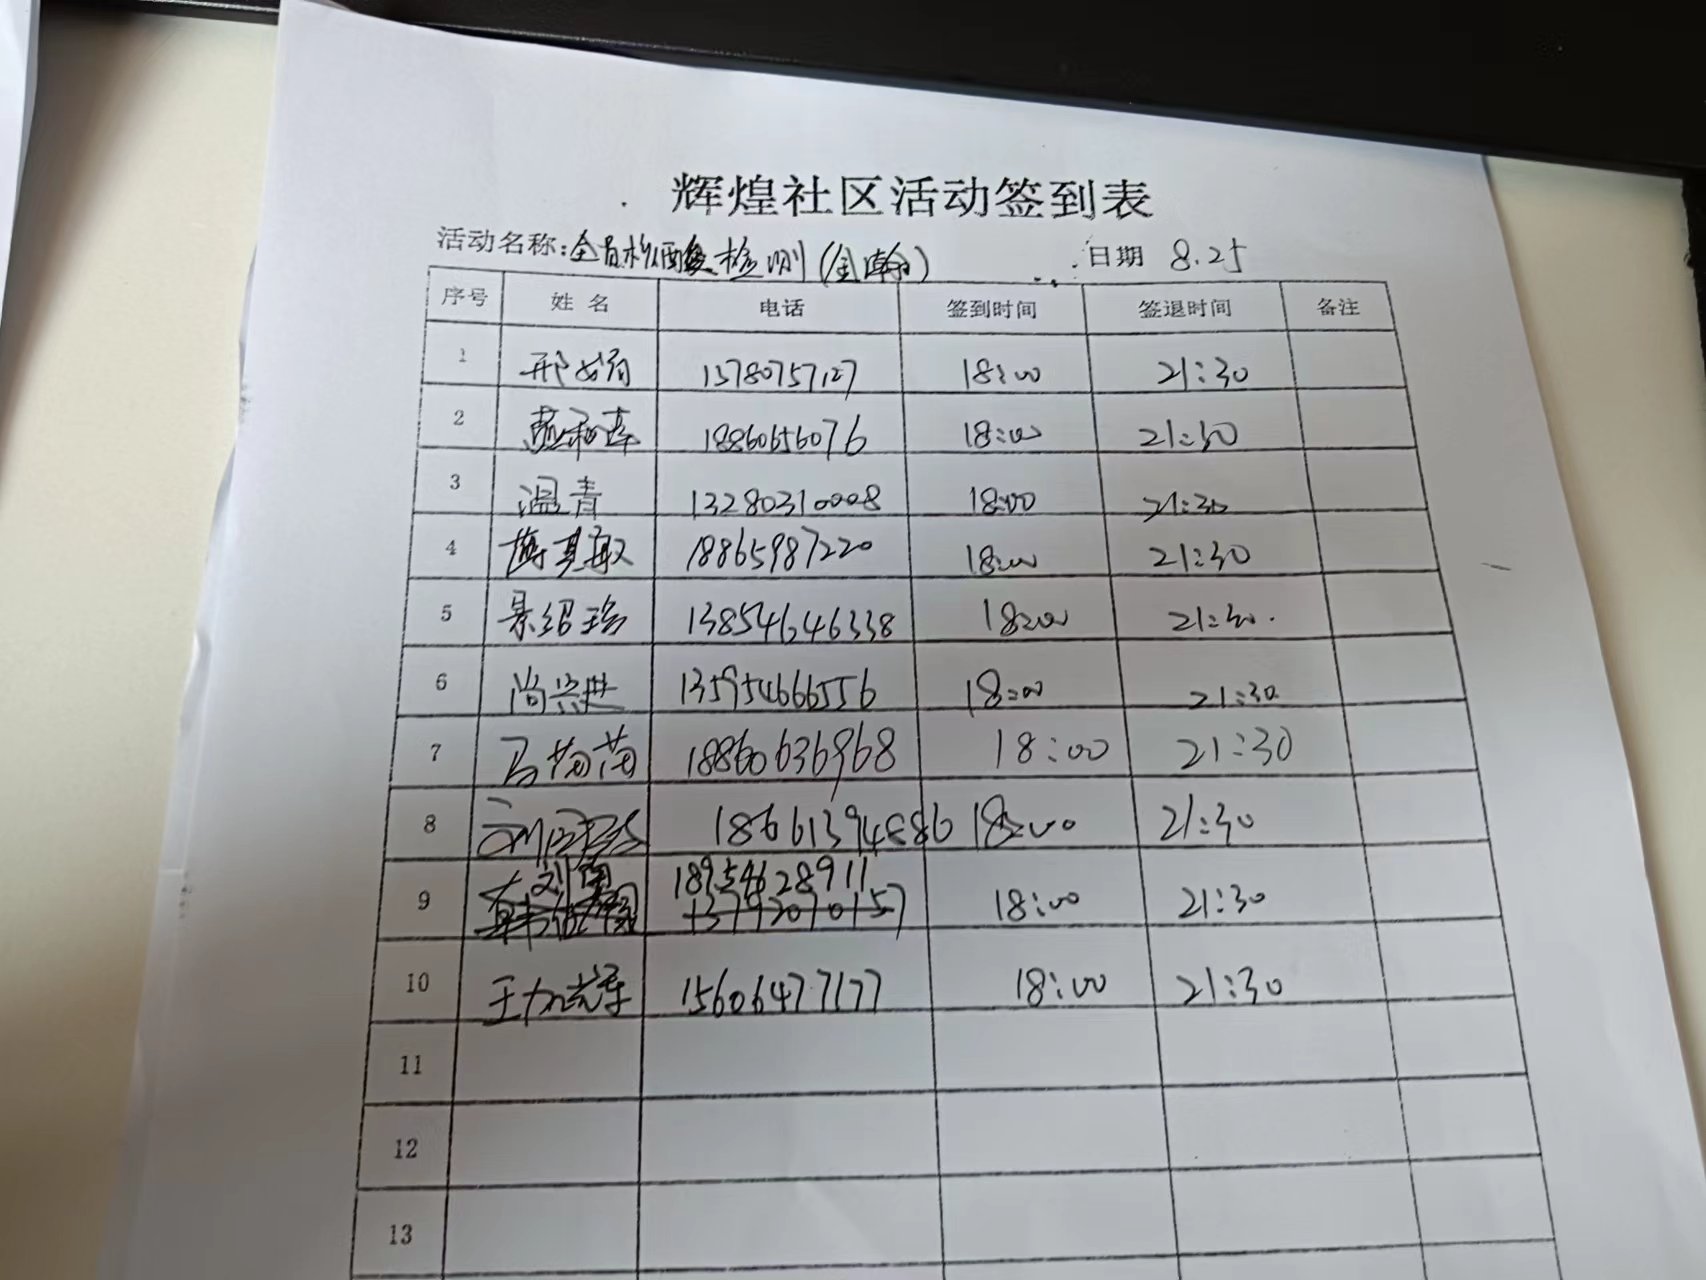 辉煌社区活动签到表
活动名称:全员核酸检测(金瀚) 日期 8.25
序号 姓名 电话 签到时间 签退时间 备注
1 邢 13780757127 18:00 21:30
2 18860656076 18:00 21:30
3 温青 13280310008 18:00 21:30
4 18865987220 18:00 21:30
5 景绍瑞 13854646338 18:00 21:30
6 尚兴进 13595466556 18:00 21:30
7 马茜茜 18860636968 18:00 21:30
8 18661394886 18:00 21:30
9 18954628911 18:00 21:30
13792070157
10 王 15606477177 18:00 21:30
11
12
13